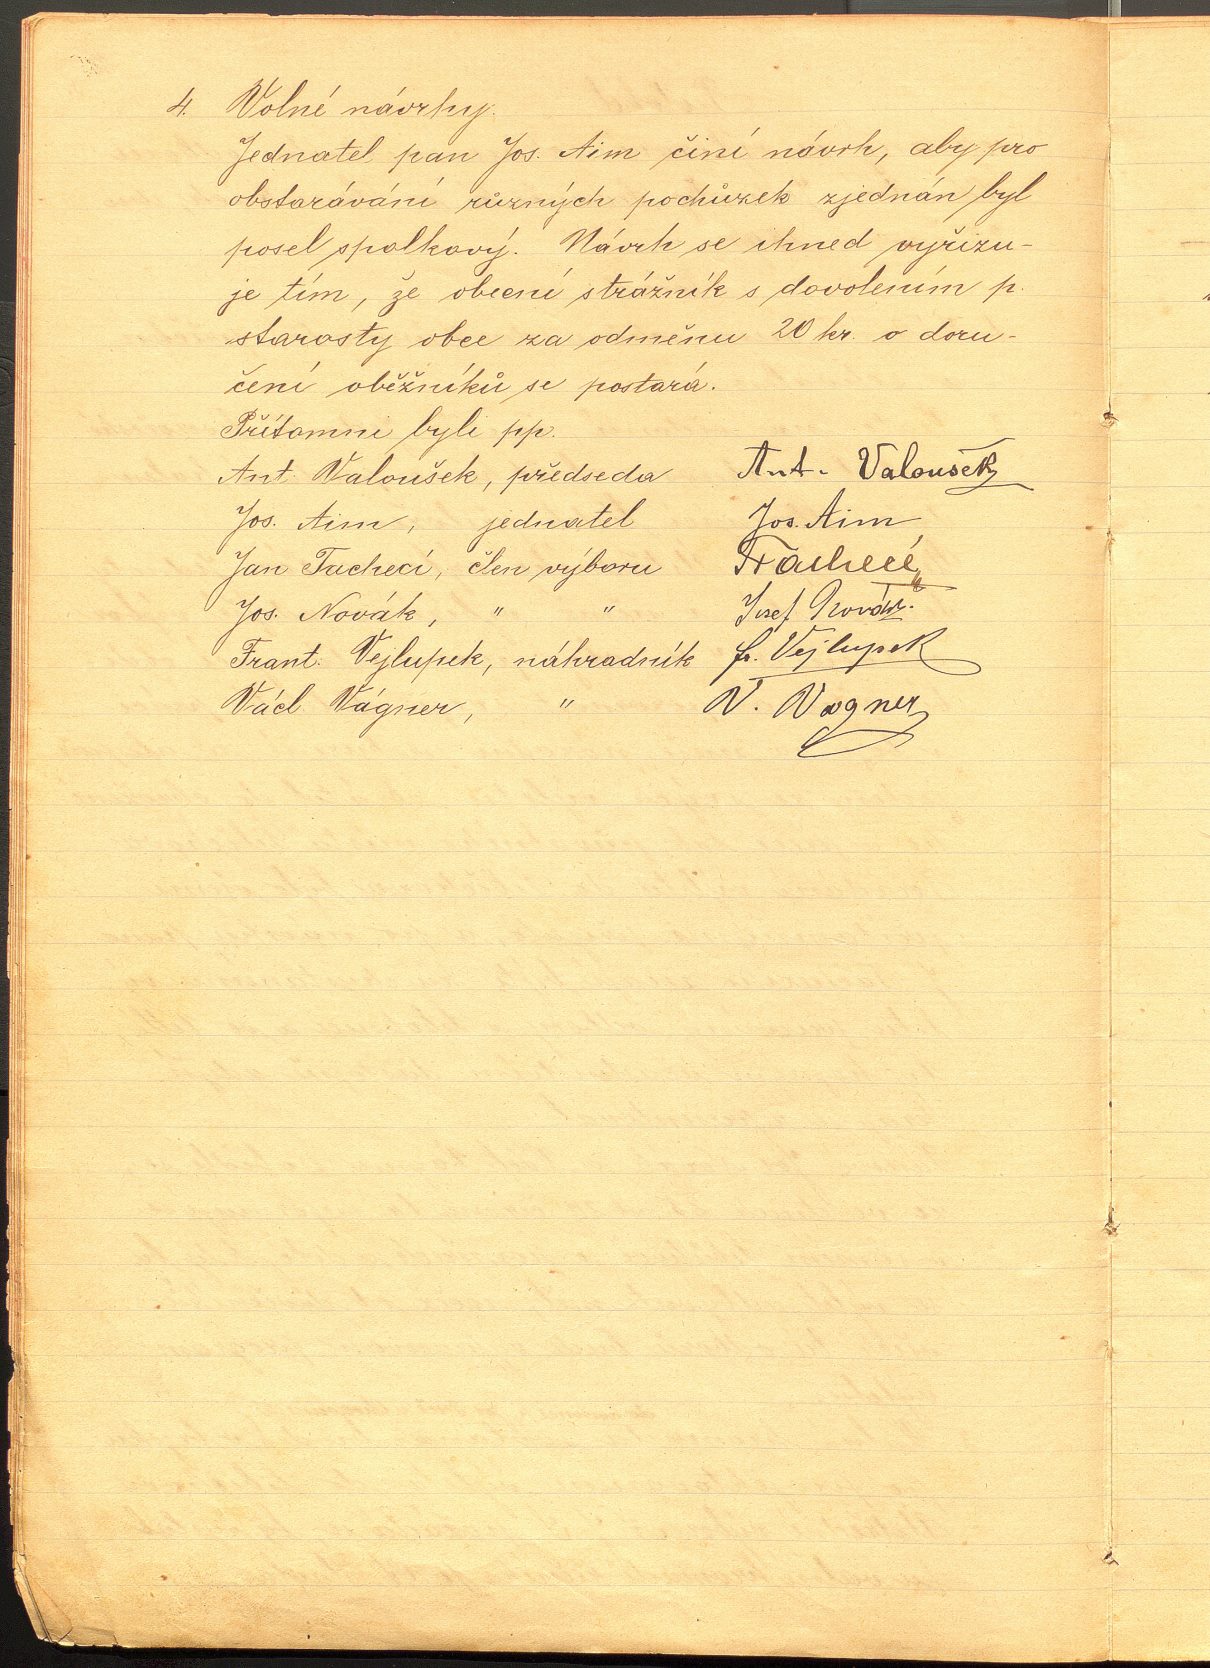 4. Volné návrhy.
Jednatel pan Jos. Aim činí návrh, aby pro
obstarávání různých pochůzek zjednán byl
posel spolkový. Návrh se ihned vyřizu-
je tím, že obecní strážník s dovolením p.
starosty obce za odměnu 20 kr. o doru-
čení oběžníků se postará.
Přítomni byli pp.
Ant. Valoušek, předseda Ant. Valoušek
Jos. Aim, jednatel Jos. Aim
Jan Tachecí, člen výboru Tachecí
Jos. Novák, " " Josef Novák.
Frant. Vejlupek, náhradník fr. Vejlupek
Václ. Vágner, " V. Vagner